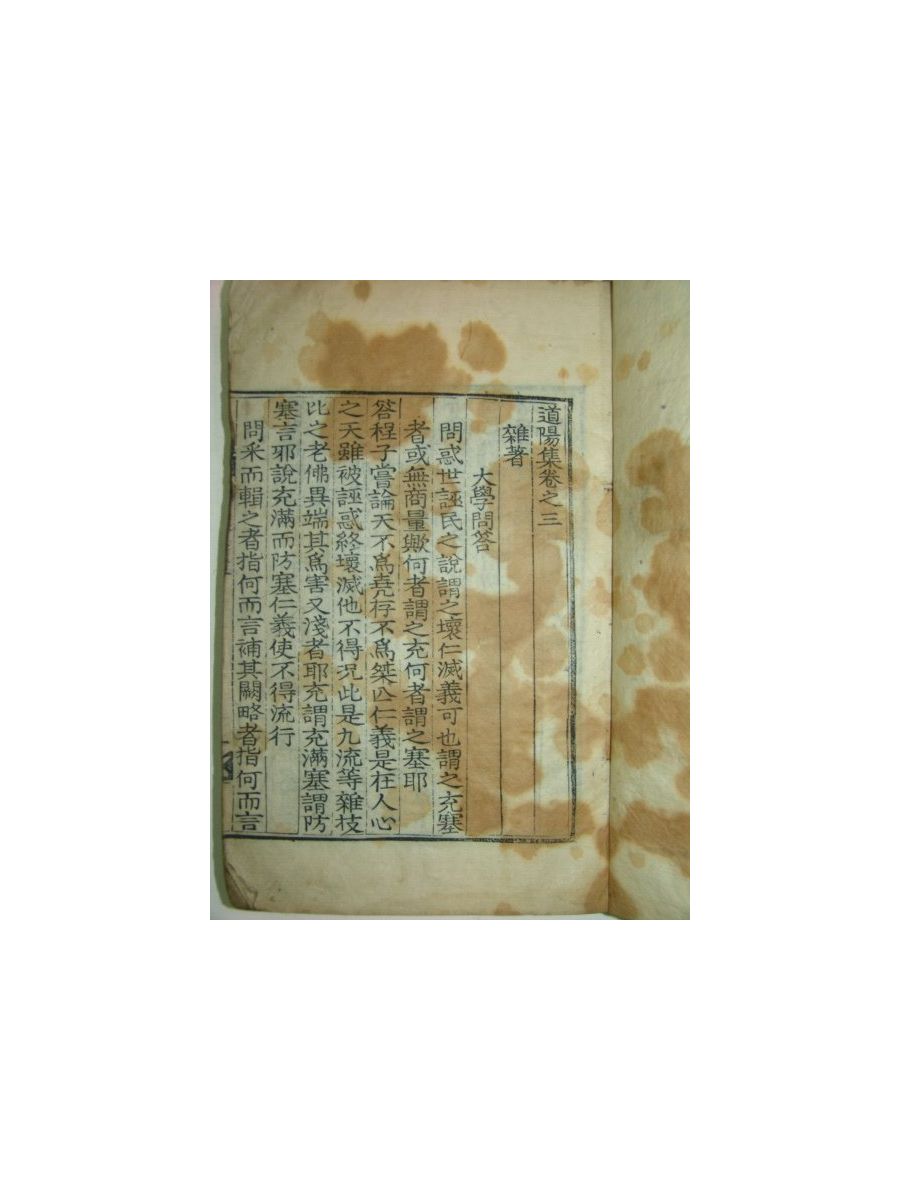 道陽集卷之三
雜著
大學問答
問惑世誣民之說謂之壞仁滅義可也謂之充塞
者或無商量歟何者謂之充何者謂之塞耶
答程子嘗論天不爲堯存不爲桀亾仁義是在人心
之天雖被誣惑終壞滅他不得况此是九流等雜技
比之老佛異端其爲害又淺者耶充謂充滿塞謂防
塞言邪說充滿而防塞仁義使不得流行
問釆而輯之者指何而言補其闕略者指何而言